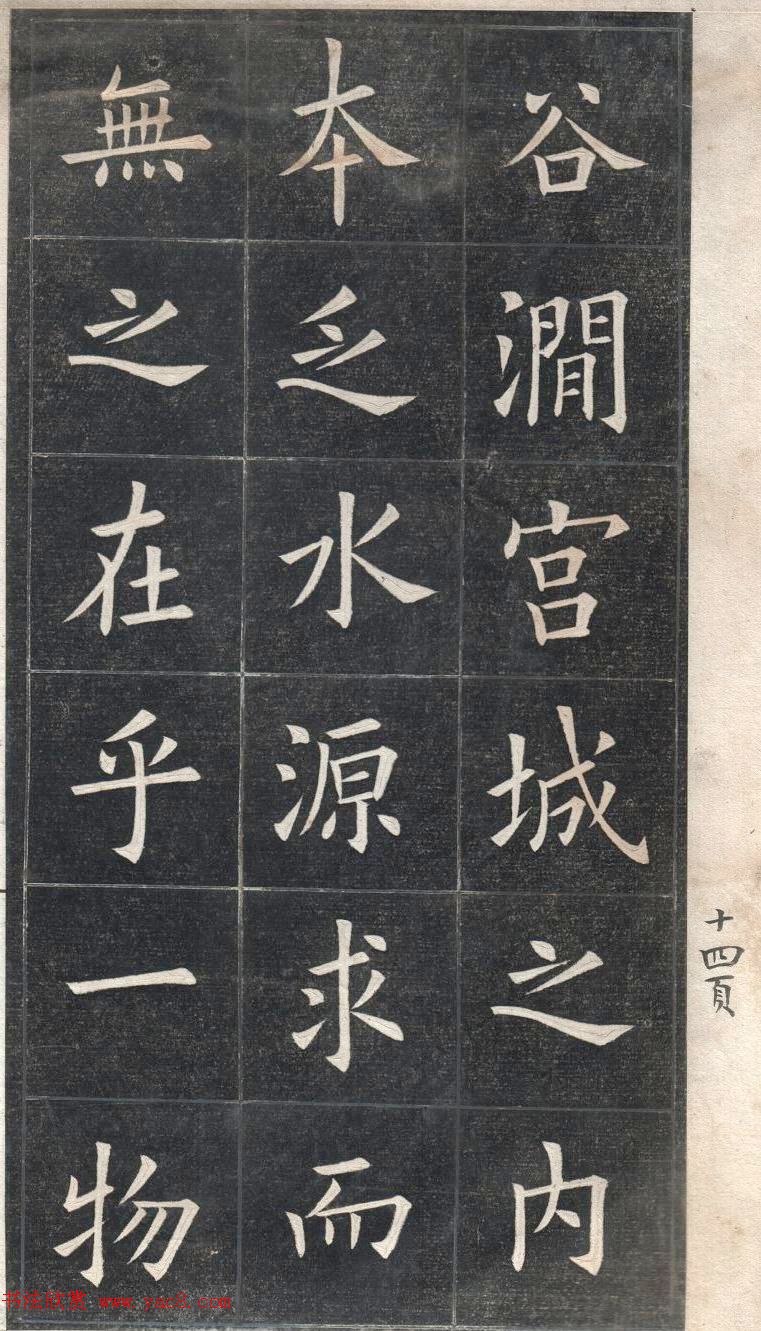 谷澗宮城之内
本乏水源求而
無之在乎一物
十四頁
书法欣赏 www.yac8.com